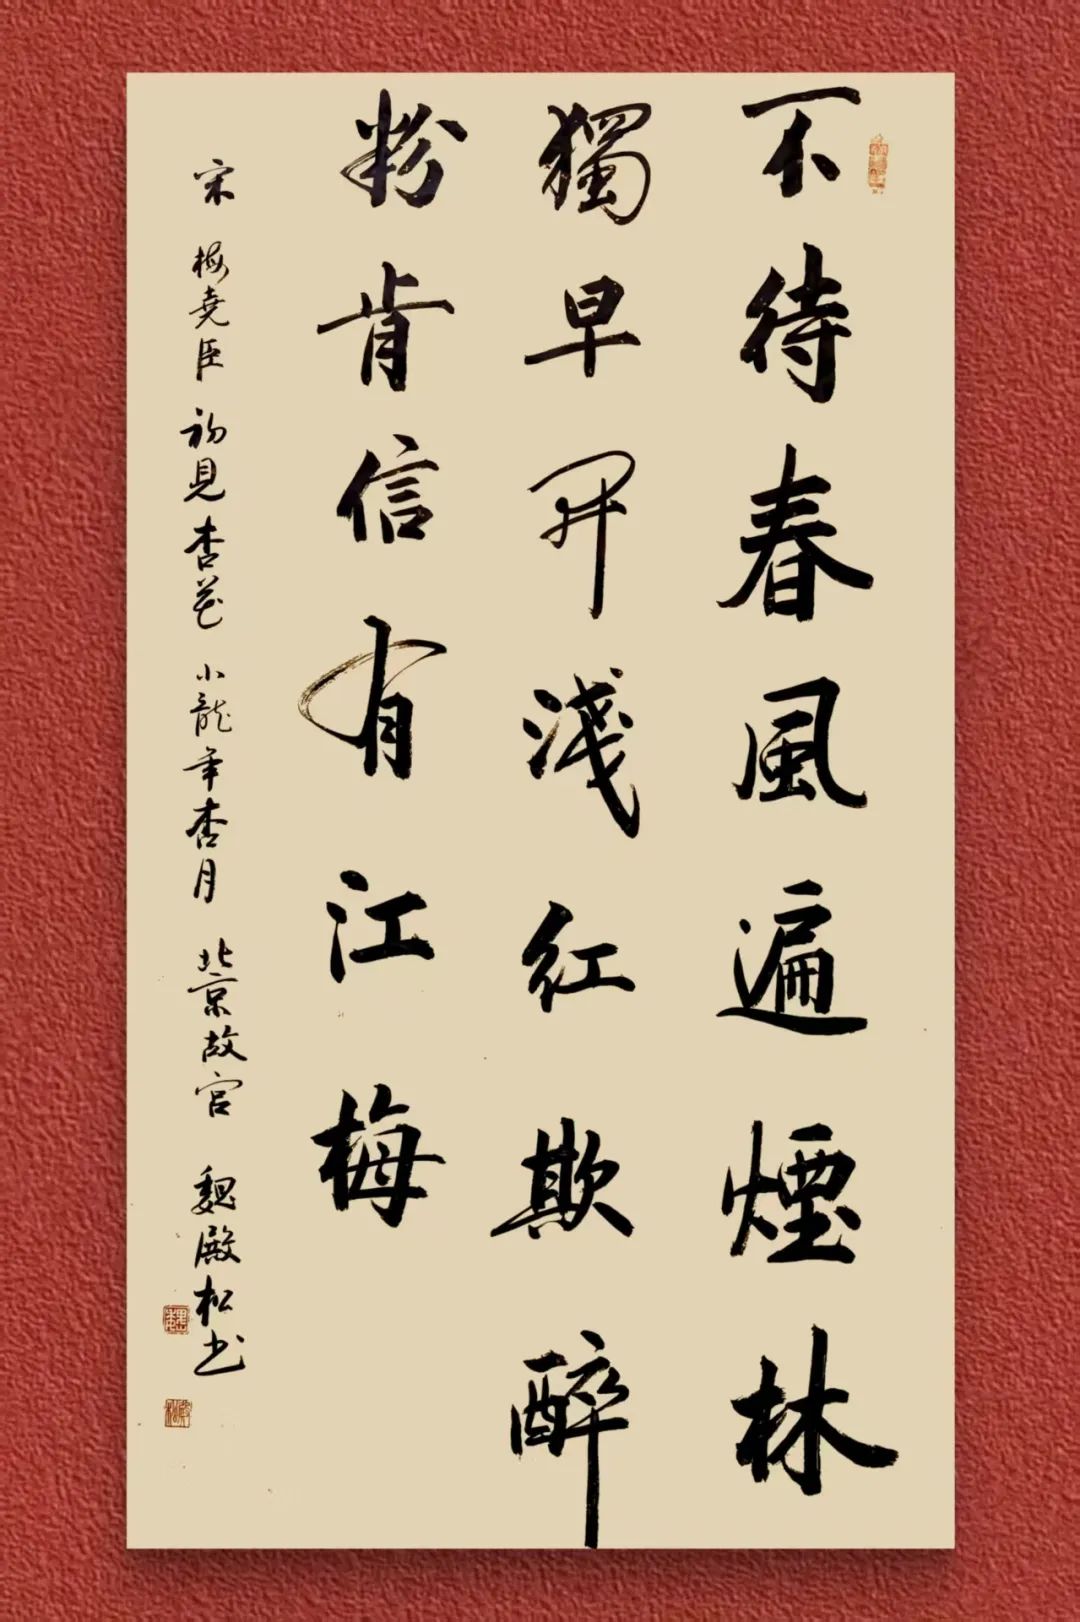 不待春風遍煙林
獨早开淺紅欺醉
粉肯信有江梅
宋 梅堯臣 初見杏花 小龍年杏月 北京故宫 魏殿松书